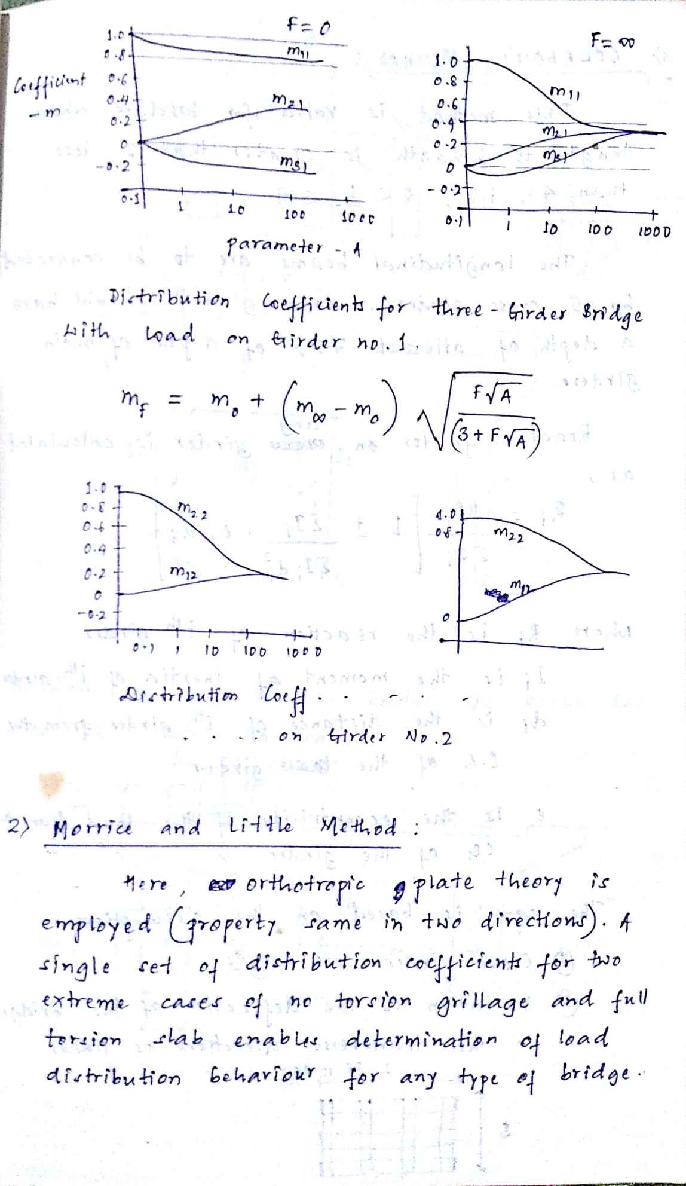 F = 0
F = ∞
Coefficient - m
1.0
0.8
0.6
0.4
0.2
0
-0.2
0.1 1 10 100 1000
m11
m21
m31
1.0
0.8
0.6
0.4
0.2
0
-0.2
0.1 1 10 100 1000
m11
m21
m31
parameter - A
Distribution Coefficients for three - Girder Bridge
with load on Girder no. 1
mf = m0 + (m∞ - m0) √(F√A / (3 + F√A))
1.0
0.8
0.6
0.4
0.2
0
-0.2
0.1 1 10 100 1000
m22
m12
1.0
0.8
0
m22
m12
Distribution Coeff . . - . -
. . . . on Girder No. 2
2) Morrice and Little Method :
Here, orthotropic plate theory is
employed (property same in two directions). A
single set of distribution coefficients for two
extreme cases of no torsion grillage and full
torsion slab enables determination of load
distribution behaviour for any type of bridge.